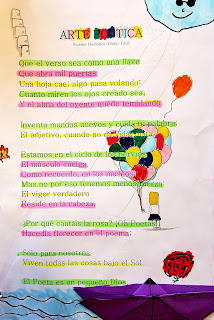 ARTE POÉTICA
Vicente Huidobro (Chile, 1916)
Que el verso sea como una llave
Que abra mil puertas.
Una hoja cae; algo pasa volando;
Cuanto miren los ojos creado sea,
Y el alma del oyente quede temblando.
Inventa mundos nuevos y cuida tu palabra;
El adjetivo, cuando no da vida, mata.
Estamos en el ciclo de los nervios.
El músculo cuelga,
Como recuerdo, en los museos;
Mas no por eso tenemos menos fuerza:
El vigor verdadero
Reside en la cabeza.
¿Por qué cantáis la rosa? ¡Oh Poetas!
Hacedla florecer en el poema;
Sólo para nosotros
Viven todas las cosas bajo el Sol.
El Poeta es un pequeño Dios.